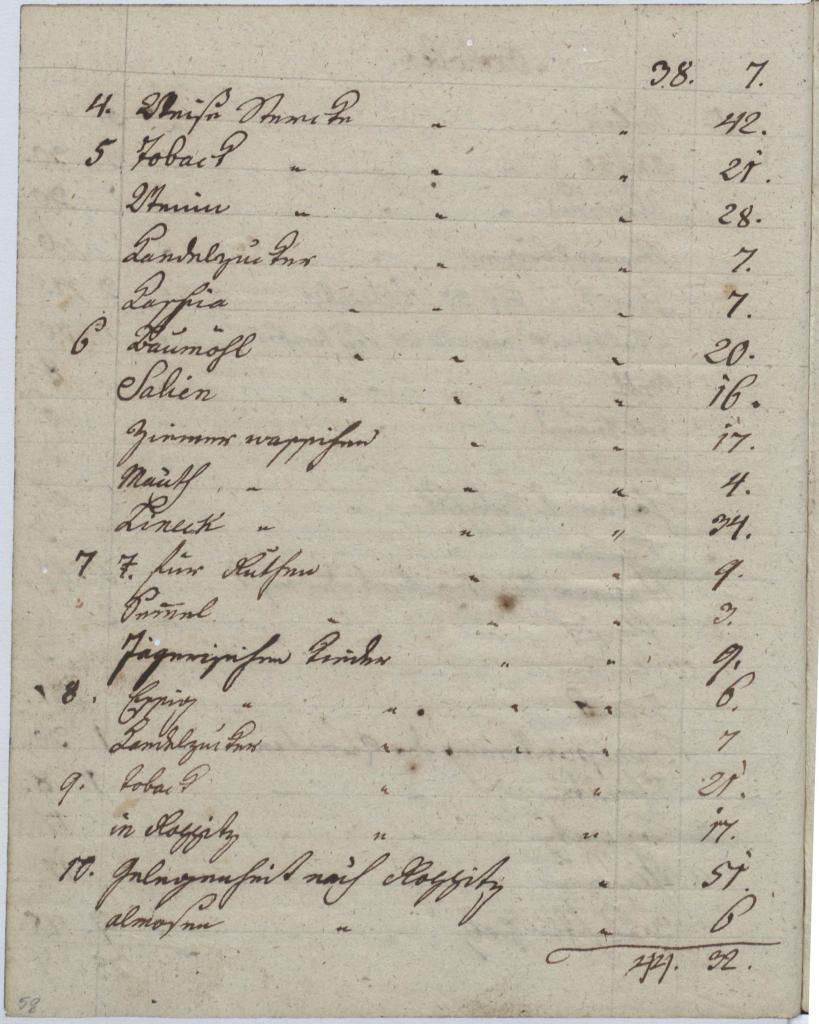 38. 7.
4. Weise Stercke " " 42.
5 Toback " " " 21.
Wein " " " 28.
Kandelzucker " " 7.
Cassia " " " 7.
6 Baumöhl " " " 20.
Salien " " " 16.
Ziemer waschen " " 17.
Mauth " " " 4.
Zineck " " " 34.
7 7. für Ruthen " " 9.
Sem̅el " " " 3.
Jägerischen Kinder " " 9.
8. Essig " " " " 6.
Kandelzucker " " " 7
9. toback " " 21.
in Rossitz " " 17.
10. Gelegenheit nach Rossitz " 51.
almosen " " 6
44. 32.
58